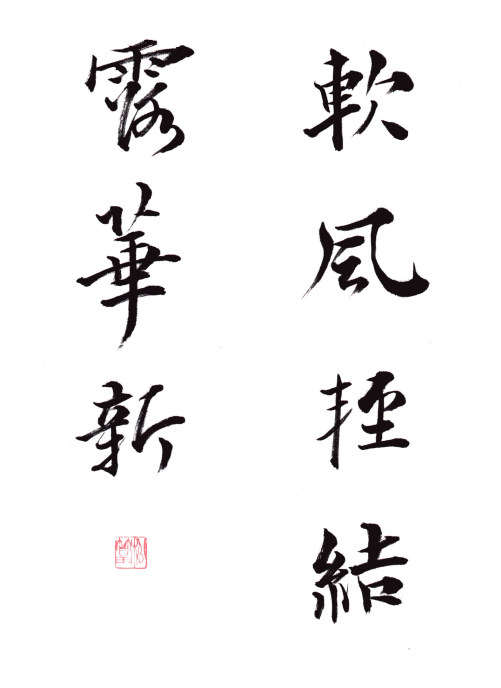 軟風軽結
露華新